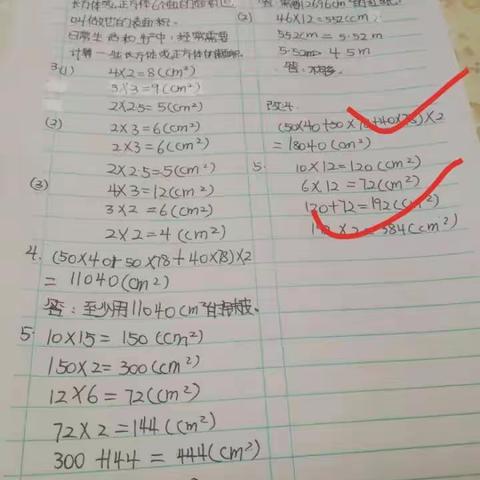 长方体或正方体6个面的总面积,
叫做它的表面积。
日常生活和生产中,经常需要
计算一些长方体或正方体的表面积。
3.(1) 4×2=8(cm²)
3×3=9(cm²)
2×2.5=5(cm²)
(2) 2×3=6(cm²)
2×3=6(cm²)
2×2.5=5(cm²)
(3) 4×3=12(cm²)
3×2=6(cm²)
2×2=4(cm²)
4. (50×40+50×78+40×78)×2
=11040(cm²)
答:至少用11040cm²的
5. 10×15=150(cm²)
150×2=300(cm²)
12×6=72(cm²)
72×2=144(cm²)
300+144=444(cm²)
(2) 46×12=552(cm)
552cm=5.52m
5.52m 4.5m
答:不够。
改4.
(50×40+50×78+40×78)×2
=18040(cm²)
5. 10×12=120(cm²)
6×12=72(cm²)
120+72=192(cm²)
192×2=384(cm²)